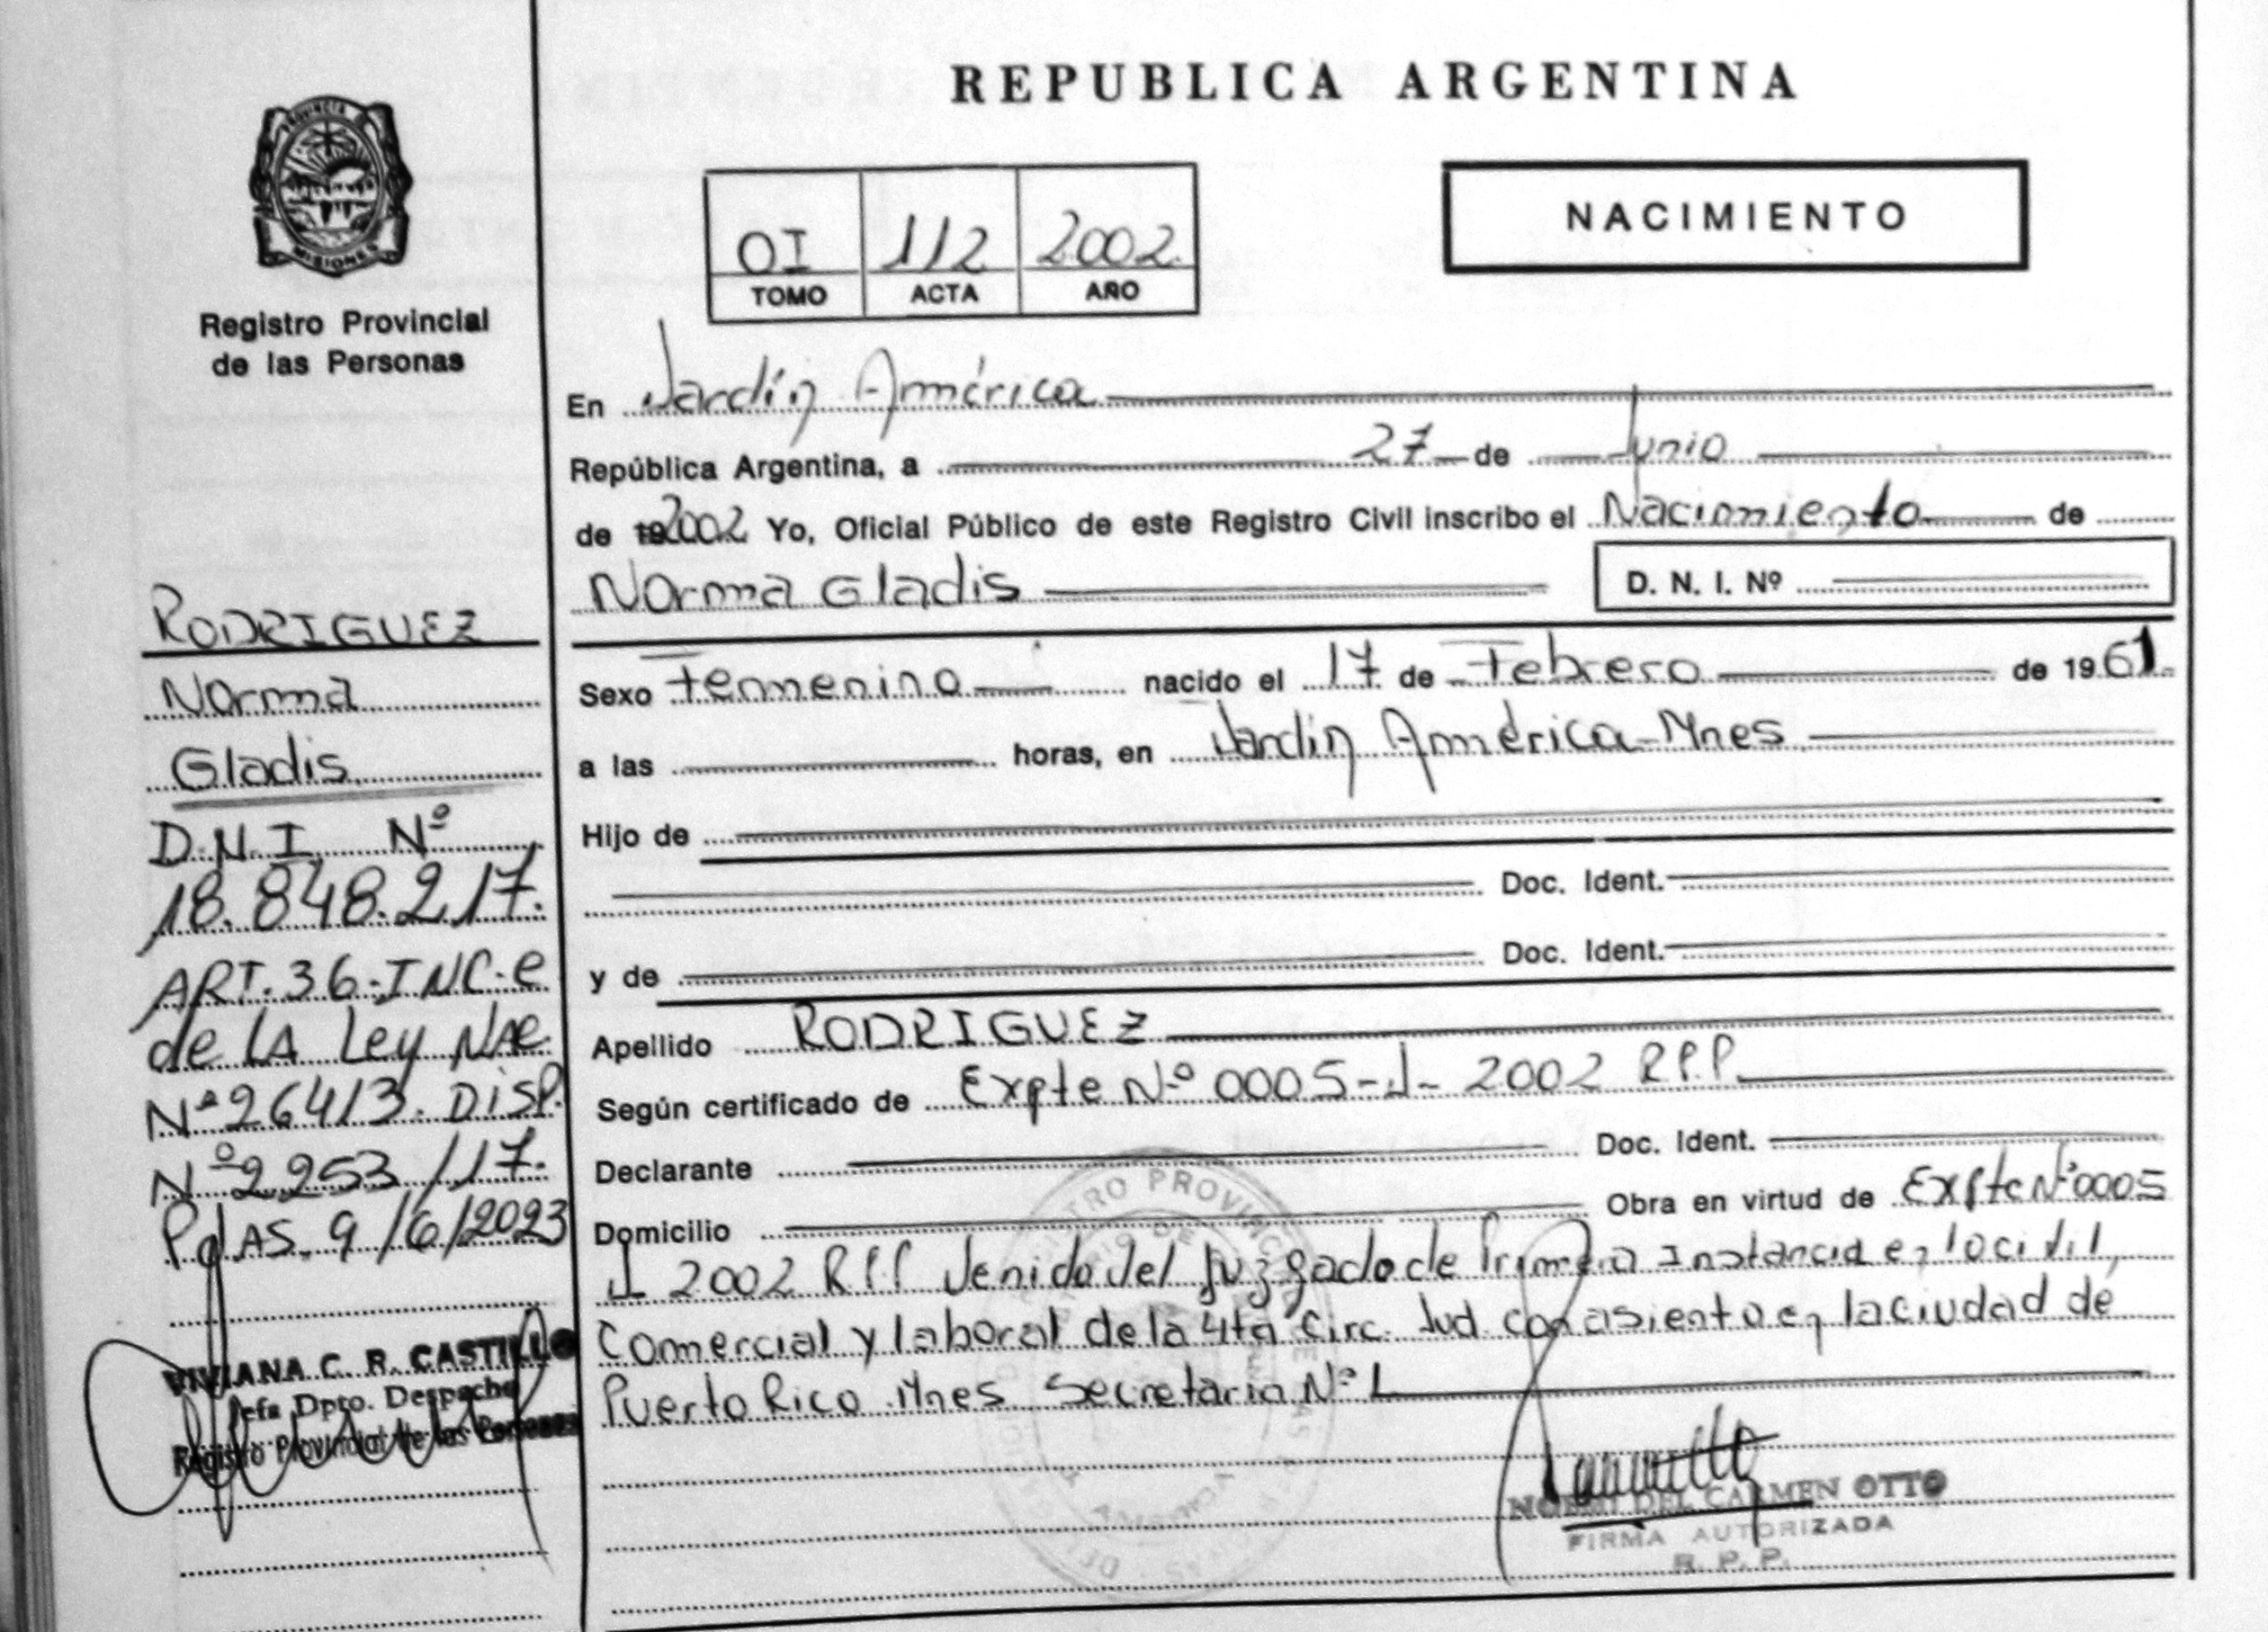 REPUBLICA ARGENTINA
PROVINCIA
MISIONES
Registro Provincial
de las Personas
OI 112 2002
TOMO ACTA AÑO
NACIMIENTO
En Jardín América
República Argentina, a 27 de Junio
de 192002 Yo, Oficial Público de este Registro Civil inscribo el Nacimiento de
Norma Gladis D. N. I. Nº
Sexo Femenino nacido el 17 de Febrero de 1961.
a las horas, en Jardín América-Mnes
Hijo de
Doc. Ident.
y de Doc. Ident.
Apellido RODRIGUEZ
Según certificado de Expte Nº 0005-J- 2002 R.P.P.
Declarante Doc. Ident.
Domicilio Obra en virtud de Expte Nº0005
J 2002 RPP Venido del Juzgado de Primera Instancia en lo civil,
Comercial y laboral de la 4ta Circ. Jud. con asiento en la ciudad de
Puerto Rico Mnes Secretaria Nº 1
DEL CARMEN OTTO
FIRMA AUTORIZADA
R. P. P.
RODRIGUEZ
Norma
Gladis
D.N.I Nº
18.848.217.
ART.36-INC-e
de LA Ley
Nº26413. DISP.
Nº2253/17.
PdAS. 9/6/2023
VIVIANA C. R. CASTILLO
Jefa Dpto. Despacho
Registro Provincial de las Personas